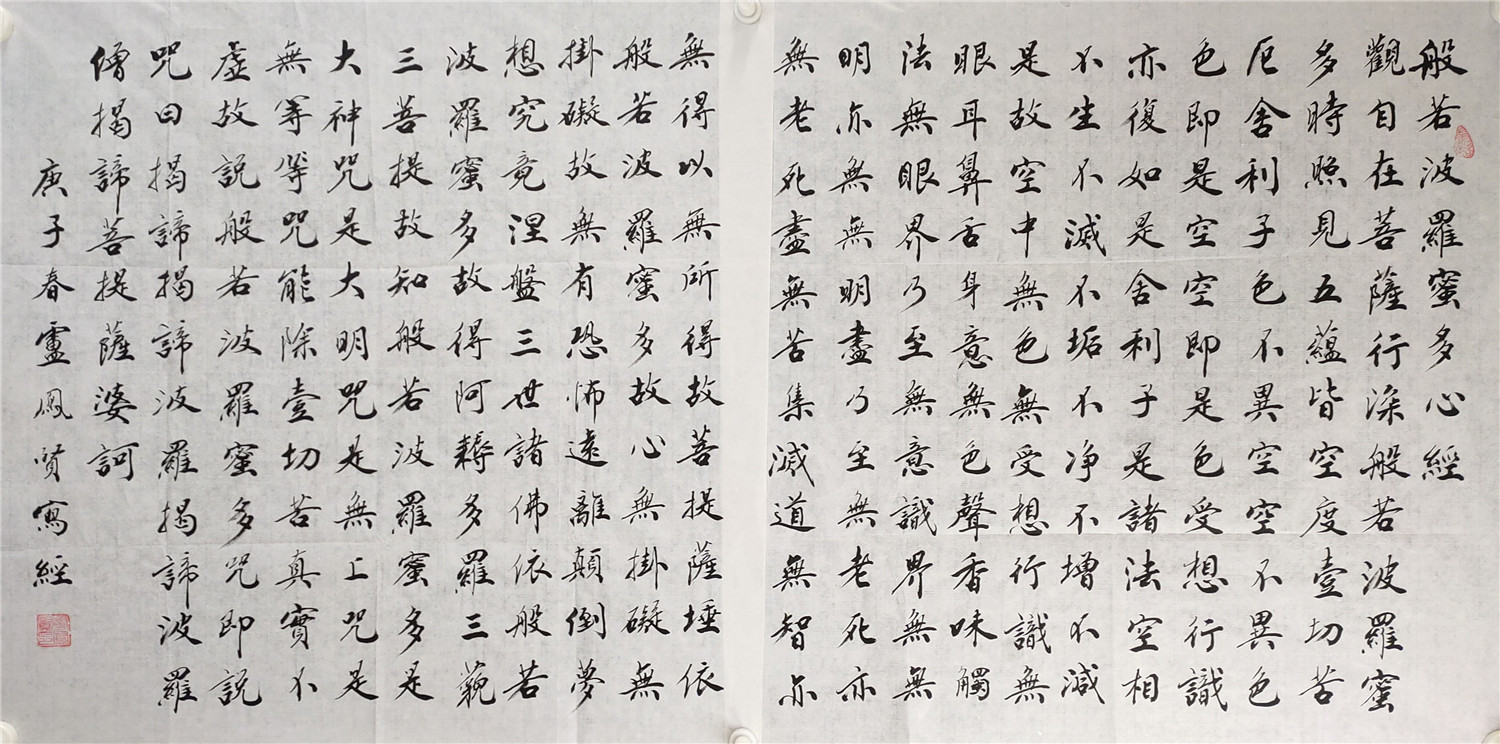 般若波羅蜜多心經
觀自在菩薩行深般若波羅蜜
多時照見五蘊皆空度壹切苦
厄舍利子色不異空空不異色
色即是空空即是色受想行識
亦復如是舍利子是諸法空相
不生不滅不垢不净不增不減
是故空中無色無受想行識無
眼耳鼻舌身意無色聲香味觸
法無眼界乃至無意識界無無
明亦無無明盡乃至無老死亦
無老死盡無苦集滅道無智亦
無得以無所得故菩提薩埵依
般若波羅蜜多故心無掛礙無
掛礙故無有恐怖遠離顛倒夢
想究竟涅盤三世諸佛依般若
波羅蜜多故得阿耨多羅三藐
三菩提故知般若波羅蜜多是
大神咒是大明咒是無上咒是
無等等咒能除壹切苦真實不
虛故說般若波羅蜜多咒即說
咒曰揭諦揭諦波羅揭諦波羅
僧揭諦菩提薩婆訶
庚子春盧鳳賢寫經